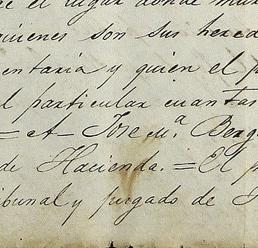 el lugar donde
quienes son sus hered
entaria y quien el p
l particular cuantas
= A Jose M.ª Berg
de Hacienda. = El p
ibunal y juzgado de